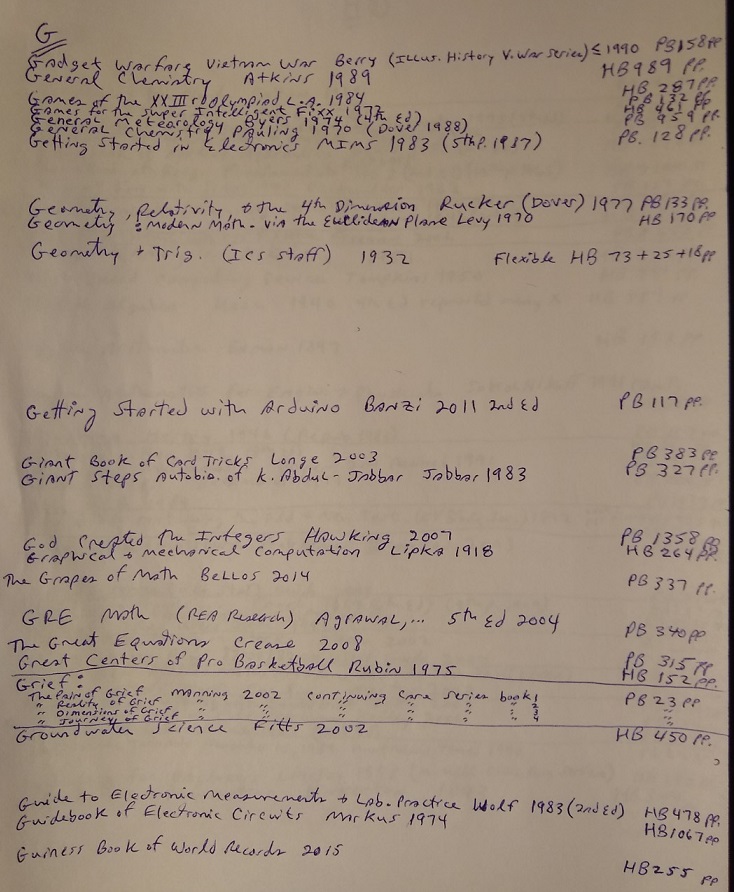 G
Gadget Warfare Vietnam War Berry (Illus. History V. War Series) ≤ 1990 PB 158 pp
General Chemistry Atkins 1989 HB 989 pp.
Games of the XXIII rd Olympiad L.A. 1984 HB 287 pp.
Games for the Super Intelligent Fixx 1972 PB 132 pp.
General Meteorology Byers 1974 (4th Ed) HB 461 pp
General Chemistry Pauling 1970 (Dover 1988) PB 959 pp.
Getting Started in Electronics MIMS 1983 (5th P. 1987) PB. 128 pp.
Geometry, Relativity, + the 4th Dimension Rucker (Dover) 1977 PB 133 pp.
Geometry: Modern Math. via the Euclidean Plane Levy 1970 HB 170 pp
Geometry + Trig. (ICS Staff) 1932 Flexible HB 73+25+18 pp
Getting Started with Arduino BANZI 2011 2nd Ed PB 117 pp.
Giant Book of Card Tricks Longe 2003 PB 383 pp
GIANT Steps Autobio. of K. Abdul-Jabbar Jabbar 1983 PB 327 pp.
God Created the Integers Hawking 2007 PB 1358 pp
Graphical + Mechanical Computation Lipka 1918 HB 264 pp.
The Grapes of Math Bellos 2014 PB 337 pp.
GRE Math (REA Research) Agrawal,... 5th Ed 2004 PB 340 pp
The Great Equations Crease 2008 PB 315 pp
Great Centers of Pro Basketball Rubin 1975 HB 152 pp.
Grief:
The Pain of Grief Manning 2002 Continuing Care Series book 1 PB 23 pp
" Reality of Grief " " " " " " 2 "
" Dimensions of Grief " " " " " " 3 "
" Journey of Grief " " " " " " 4 "
Groundwater Science Fitts 2002 HB 450 pp.
Guide to Electronic Measurements + Lab. Practice Wolf 1983 (2nd Ed) HB 478 pp.
Guidebook of Electronic Circuits Markus 1974 HB 1067 pp
Guiness Book of World Records 2015 HB 255 pp